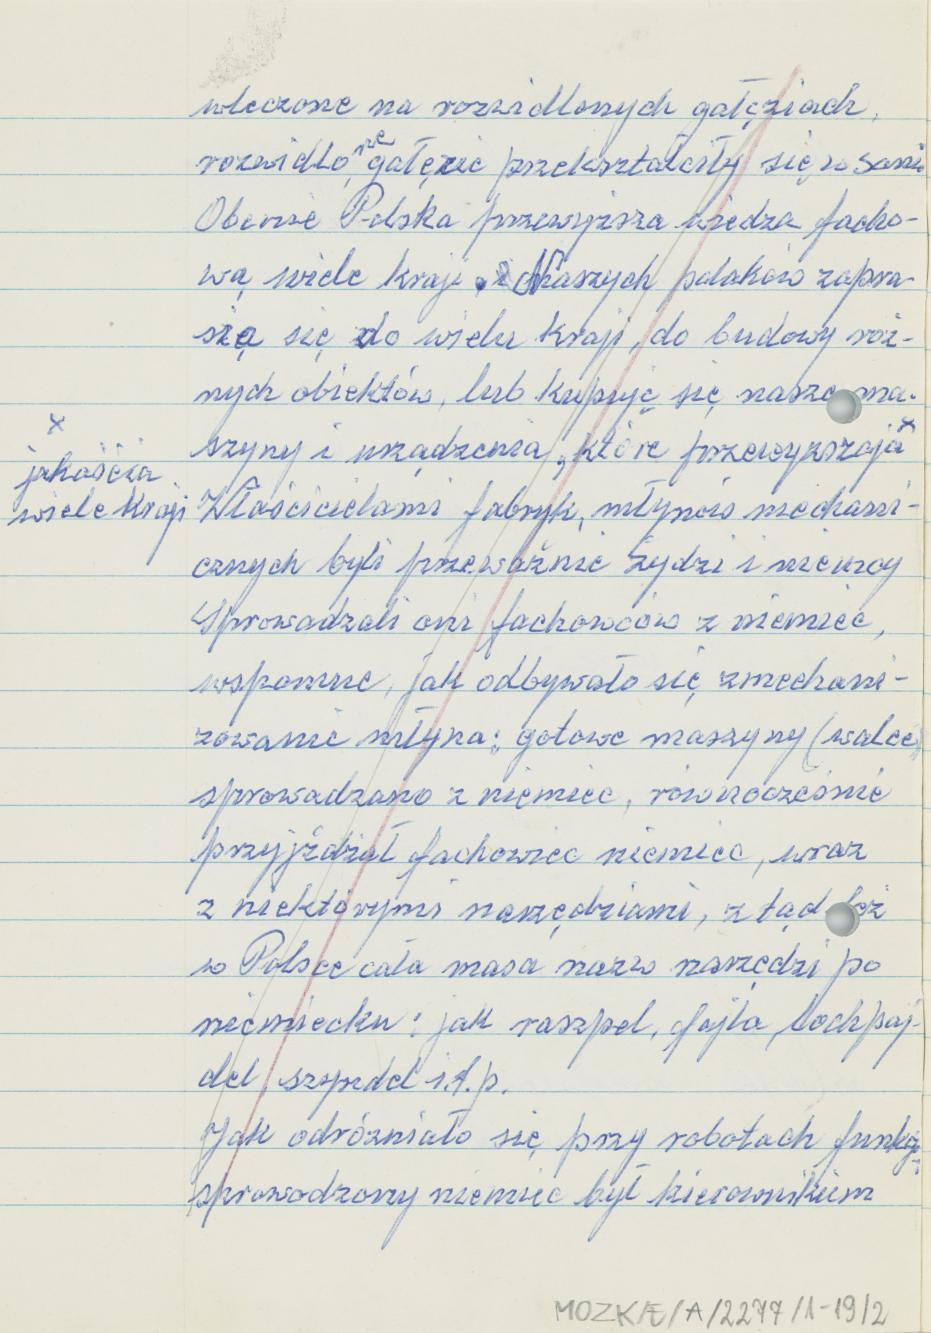 wleczone na rozwidlonych gałęziach,
rozwidlone gałęzie przekształciły się w sanie
Obecnie Polska przewyższa wiedza facho-
wą wiele kraji. Naszych polaków zapra-
szą się do wielu kraji, do budowy róż-
nych obiektów, lub kupuję się nasze ma-
szyny i urządzenia, które przewyższają x
x
jakościa
wiele kraji
Właścicielami fabryk, młynów mechani-
cznych byli przeważnie żydzi i niemcy
Sprowadzali oni fachowców z niemiec,
wspomnę, jak odbywało się zmechani-
zowanie młyna: gotowe maszyny (walce)
sprowadzano z niemiec, równocześnie
przyjźdżał fachowiec niemiec, wraz
z niektórymi narzędziami, z tąd też
w Polsce cała masa nazw narzędzi po
niemiecku: jak raszpel, fajla, lochpaj-
del, szpindel i.t.p.
Jak odróżniało się przy robotach funkcj-
sprowodzony niemiec był kierownikiem
MOZK/E/A/2277/1-19/2